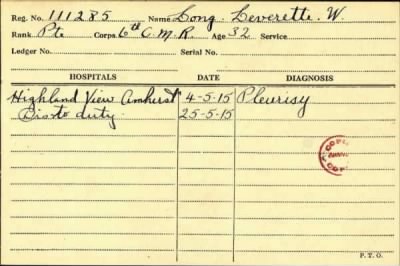 Reg. No. 111285 Name Long, Leverette. W.
Rank Pte Corps 6th C.M.R. Age 32 Service
Ledger No. Serial No.
HOSPITALS DATE DIAGNOSIS
Highland View Amherst 4-5-15 Pleurisy
Dis to duty. 25-5-15
P. T. O.